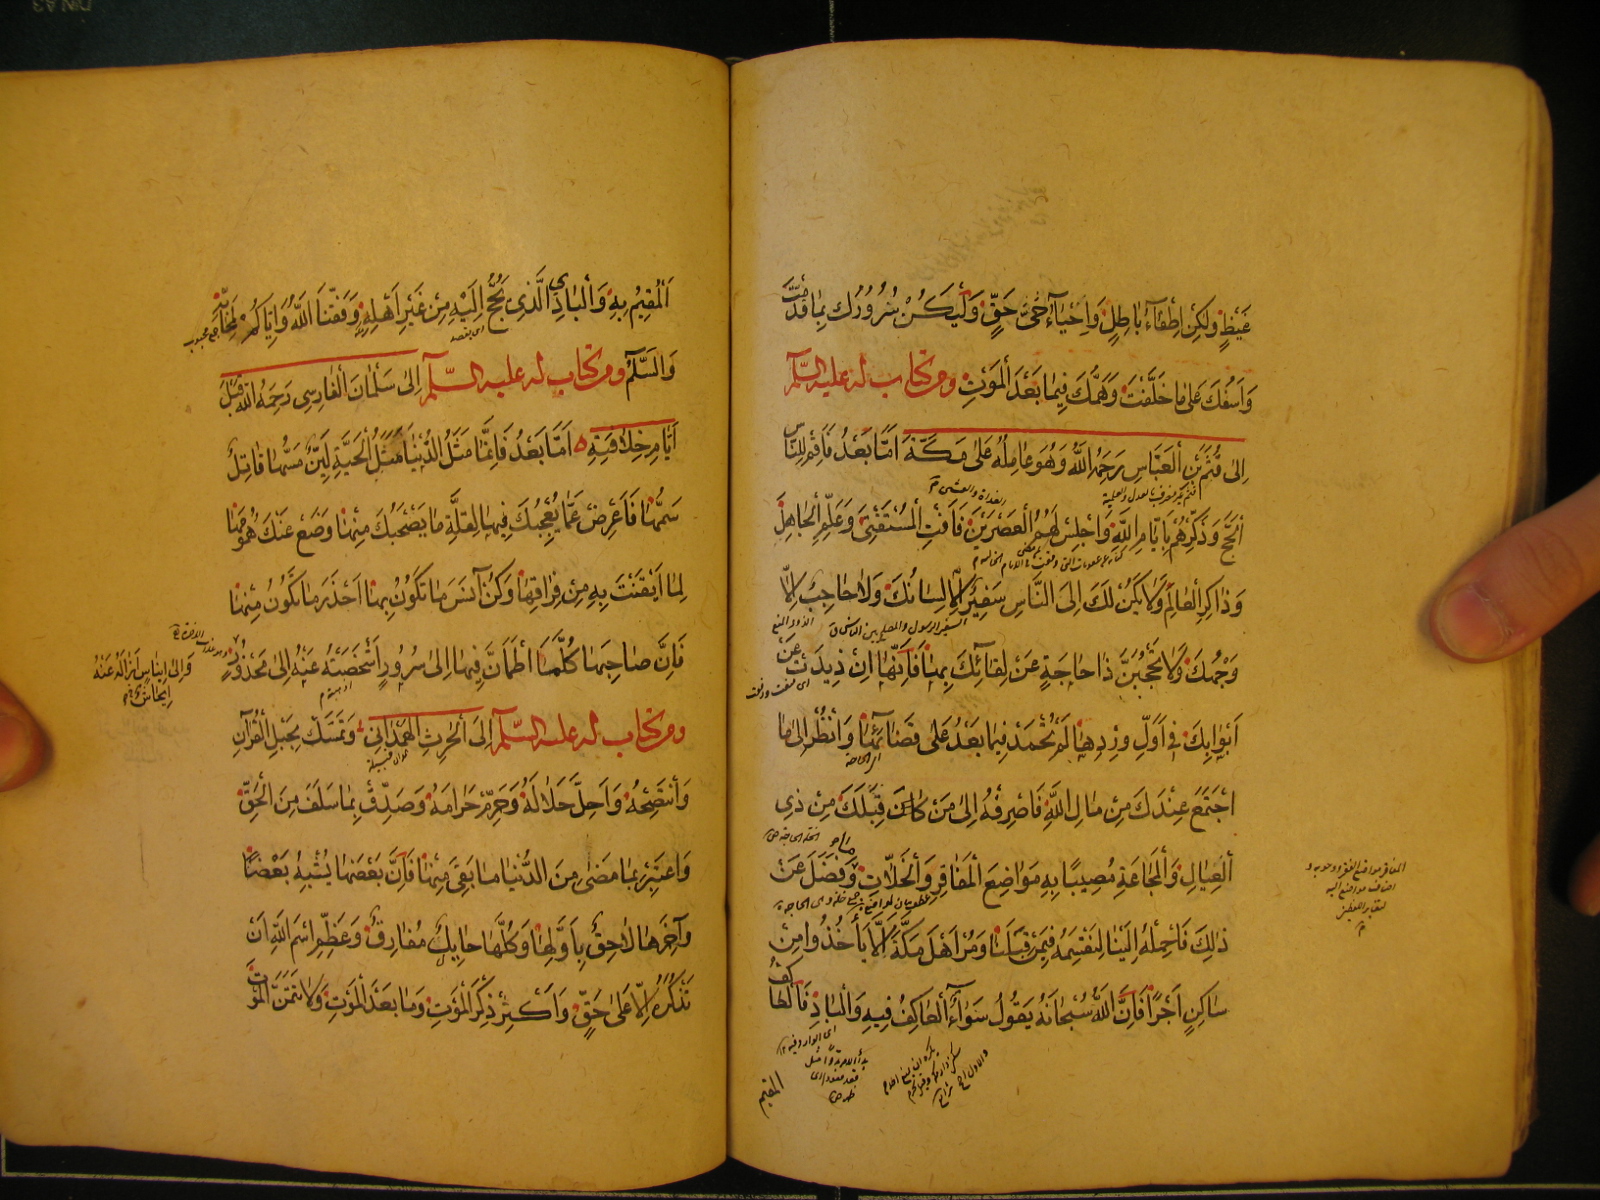 غَيْظٍ وَلٰكِنْ اِطْفَآءُ بَاطِلٍ وَاِحْيَآءُ حَقٍّ وَلْيَكُنْ سُرُورُكَ بِمَا قَدَّمْتَ
وَاَسَفُكَ عَلٰى مَا خَلَّفْتَ وَهَمُّكَ فِيمَا بَعْدَ الْمَوْتِ ومن كتاب له عليه السلم
اِلٰى قُثَمِ بْنِ الْعَبَّاسِ رَحِمَهُ اللّٰهُ وَهُوَ عَامِلُهُ عَلٰى مَكَّةَ اَمَّا بَعْدُ فَاَقِمْ لِلنَّاسِ
الْحَجَّ وَذَكِّرْهُمْ بِاَيَّامِ اللّٰهِ وَاجْلِسْ لَهُمُ الْعَصْرَيْنِ فَاَفْتِ الْمُسْتَفْتِيَ وَعَلِّمِ الْجَاهِلَ
وَذَاكِرِ الْعَالِمَ وَلَا يَكُنْ لَكَ اِلَى النَّاسِ سَفِيرٌ اِلَّا لِسَانُكَ وَلَا حَاجِبٌ اِلَّا
السفير الرسول والمصلح بين الناس
وَجْهُكَ وَلَا تَحْجُبَنَّ ذَا حَاجَةٍ عَنْ لِقَائِكَ بِهَا فَاِنَّهَا اِنْ ذِيدَتْ عَنْ
اَبْوَابِكَ فِي اَوَّلِ وِرْدِهَا لَمْ تُحْمَدْ فِيمَا بَعْدُ عَلٰى قَضَائِهَا وَانْظُرْ اِلٰى مَا
اجْتَمَعَ عِنْدَكَ مِنْ مَالِ اللّٰهِ فَاصْرِفْهُ اِلٰى مَنْ كَانَ قِبَلَكَ مِنْ ذِي
الْعِيَالِ وَالْمَجَاعَةِ مُصِيبًا بِهِ مَوَاضِعَ الْمَفَاقِرِ وَالْخَلَّاتِ وَمَا فَضَلَ عَنْ
ذٰلِكَ فَاحْمِلْهُ اِلَيْنَا لِنَقْسِمَهُ فِيمَنْ قِبَلَنَا وَمُرْ اَهْلَ مَكَّةَ اَلَّا يَأْخُذُوا مِنْ
سَاكِنٍ اَجْرًا فَاِنَّ اللّٰهَ سُبْحَانَهُ يَقُولُ سَوَآءً الْعَاكِفُ فِيهِ وَالْبَادِ فَالْعَاكِفُ
المقيم
اَلْمُقِيمُ بِهِ وَالْبَادِي الَّذِي يَحُجُّ اِلَيْهِ مِنْ غَيْرِ اَهْلِهِ وَفَّقَنَا اللّٰهُ وَاِيَّاكُمْ لِمَحَابِّهِ
اى يقصد
وَالسَّلٰمُ ومن كتاب له عليه السلم اِلٰى سَلْمَانَ الْفَارِسِي رَحِمَهُ اللّٰهُ قَبْلَ
اَيَّامِ خِلَافَتِهِ اَمَّا بَعْدُ فَاِنَّمَا مَثَلُ الدُّنْيَا مَثَلُ الْحَيَّةِ لَيِّنٌ مَسُّهَا قَاتِلٌ
سَمُّهَا فَاَعْرِضْ عَمَّا يُعْجِبُكَ فِيهَا لِقِلَّةِ مَا يَصْحَبُكَ مِنْهَا وَضَعْ عَنْكَ هُمُومَهَا
لِمَا اَيْقَنْتَ بِهِ مِنْ فِرَاقِهَا وَكُنْ آنَسَ مَا تَكُونُ بِهَا اَحْذَرَ مَا تَكُونُ مِنْهَا
فَاِنَّ صَاحِبَهَا كُلَّمَا اطْمَاَنَّ فِيهَا اِلٰى سُرُورٍ اَشْخَصَتْهُ عَنْهُ اِلٰى مَحْذُورٍ
وَاِلٰى اِينَاسٍ اَزَالَتْهُ عَنْهُ
اِيحَاش
ومن كتاب له عليه السلم اِلَى الْحٰرِثِ الْهَمْدَانِي وَتَمَسَّكْ بِحَبْلِ الْقُرْآنِ
وَانْتَصِحْهُ وَاَحِلَّ حَلَالَهُ وَحَرِّمْ حَرَامَهُ وَصَدِّقْ بِمَا سَلَفَ مِنَ الْحَقِّ
وَاعْتَبِرْ بِمَا مَضٰى مِنَ الدُّنْيَا مَا بَقِيَ مِنْهَا فَاِنَّ بَعْضَهَا يُشْبِهُ بَعْضًا
وَآخِرَهَا لَاحِقٌ بِاَوَّلِهَا وَكُلُّهَا حَايِلٌ مُفَارِقٌ وَعَظِّمِ اسْمَ اللّٰهِ اَنْ
تَذْكُرَهُ اِلَّا عَلٰى حَقٍّ وَاَكْثِرْ ذِكْرَ الْمَوْتِ وَمَا بَعْدَ الْمَوْتِ وَلَا تَتَمَنَّ الْمَوْتَ